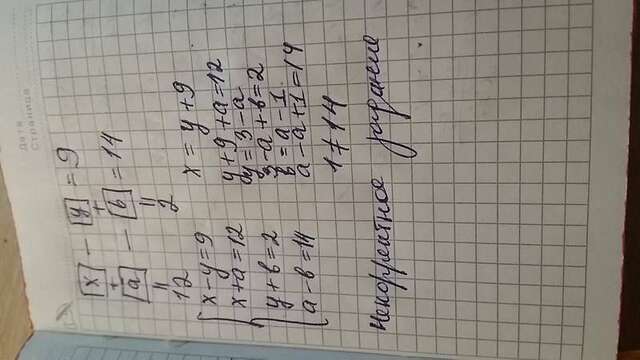 Дата
Страница
x - y = 9
+ +
a - b = 14
" "
12 2
x-y=9
x+a=12
y+b=2
a-b=14
x = y+9
y+9+a=12
y=3-a
3-a+b=2
b=a-1
a-a+1=14
1≠14
Некорректное задание